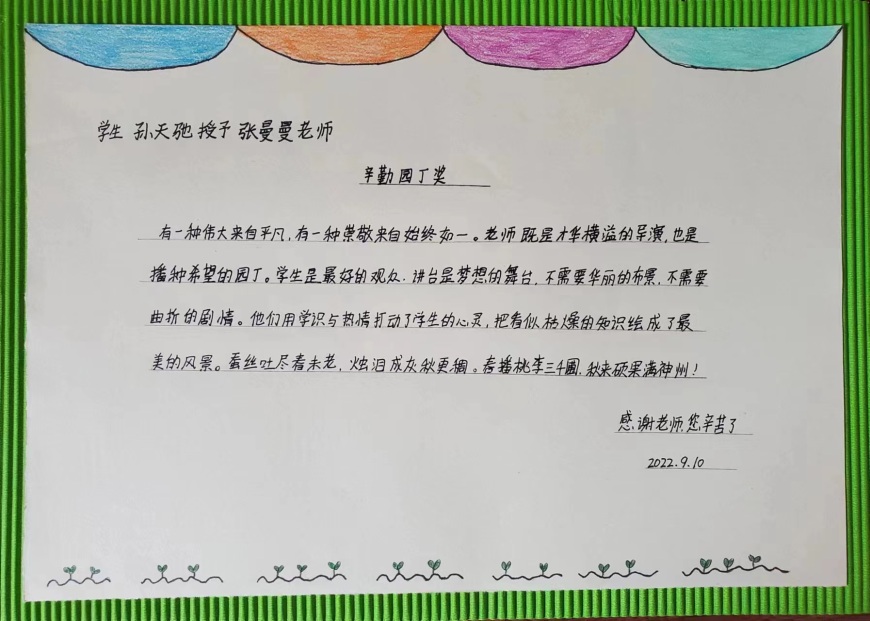 学生 孙天驰 授予 张曼曼老师
辛勤园丁奖
有一种伟大来自平凡,有一种崇敬来自始终如一。老师既是才华横溢的导演,也是
播种希望的园丁。学生是最好的观众.讲台是梦想的舞台,不需要华丽的布景,不需要
曲折的剧情。他们用学识与热情打动了学生的心灵,把看似枯燥的知识绘成了最
美的风景。蚕丝吐尽春未老,烛泪成灰秋更稠。春播桃李三千圃,秋来硕果满神州!
感谢老师,您辛苦了
2022.9.10